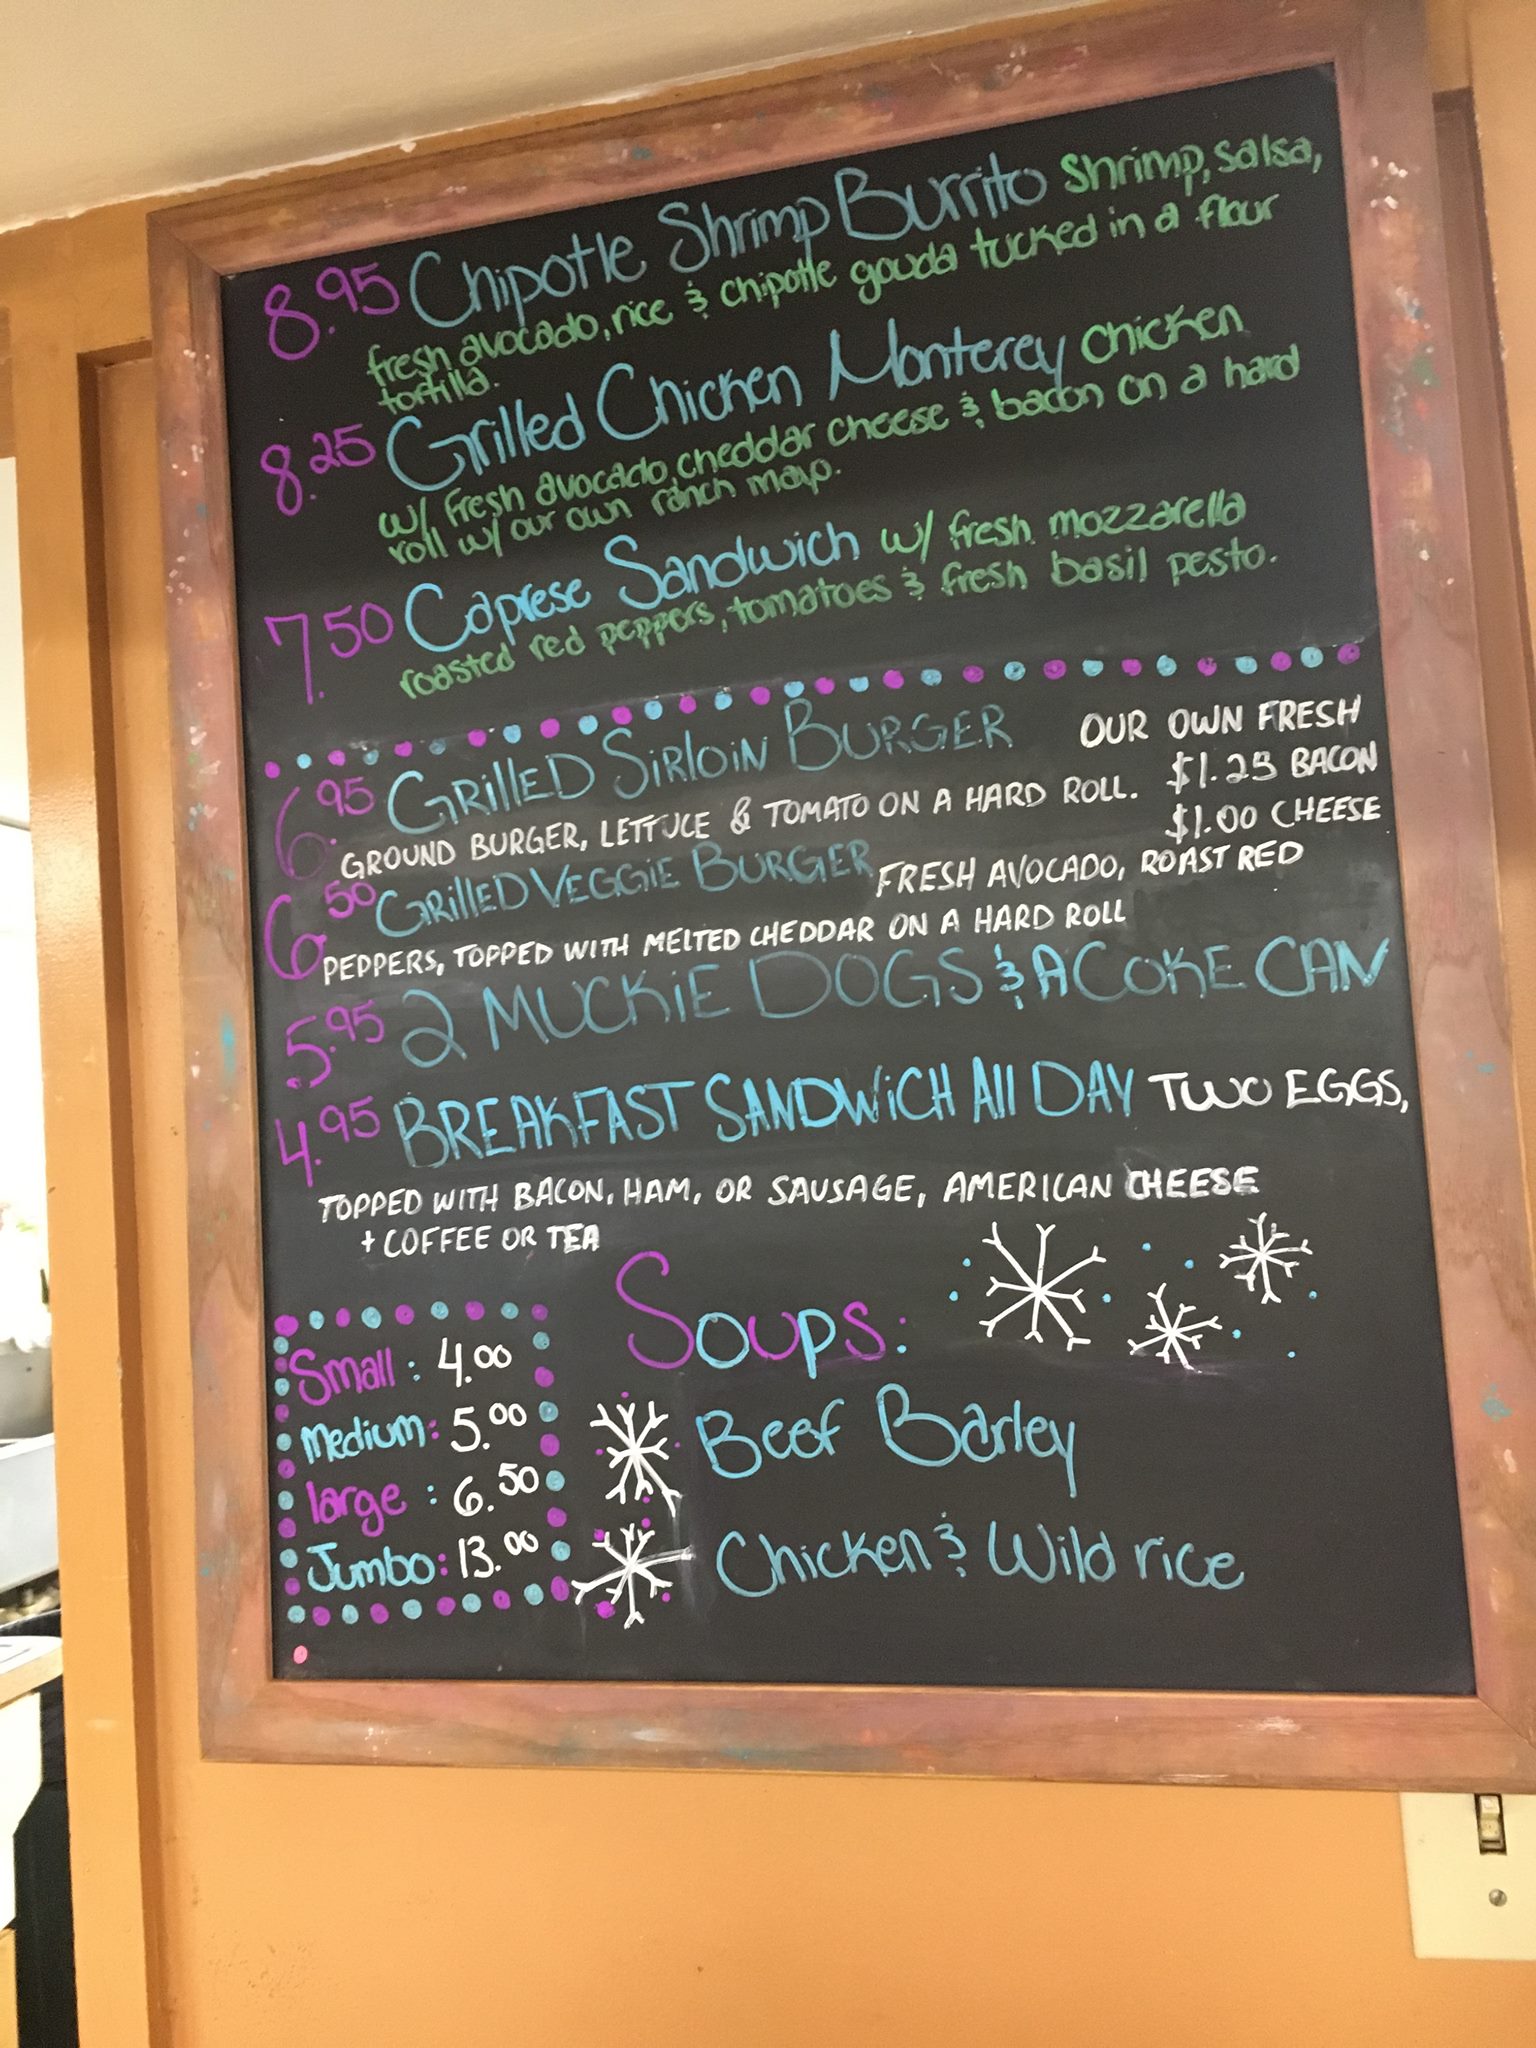 8.95 Chipotle Shrimp Burrito shrimp, salsa,
fresh avocado, rice & chipotle gouda tucked in a flour
tortilla.
8.25 Grilled Chicken Monterey chicken
w/ fresh avocado, cheddar cheese & bacon on a hard
roll w/ our own ranch mayo.
7.50 Caprese Sandwich w/ fresh mozzarella
roasted red peppers, tomatoes & fresh basil pesto.
6.95 GRILLED SIRLOIN BURGER OUR OWN FRESH
GROUND BURGER, LETTUCE & TOMATO ON A HARD ROLL. $1.25 BACON
$1.00 CHEESE
6.50 GRILLED VEGGIE BURGER FRESH AVOCADO, ROAST RED
PEPPERS, TOPPED WITH MELTED CHEDDAR ON A HARD ROLL
5.95 2 MUCKIE DOGS & A COKE CAN
4.95 BREAKFAST SANDWICH All DAY TWO EGGS,
TOPPED WITH BACON, HAM, OR SAUSAGE, AMERICAN CHEESE
+ COFFEE OR TEA
Soups:
Small: 4.00
Medium: 5.00
large: 6.50
Jumbo: 13.00
Beef Barley
Chicken & Wild rice